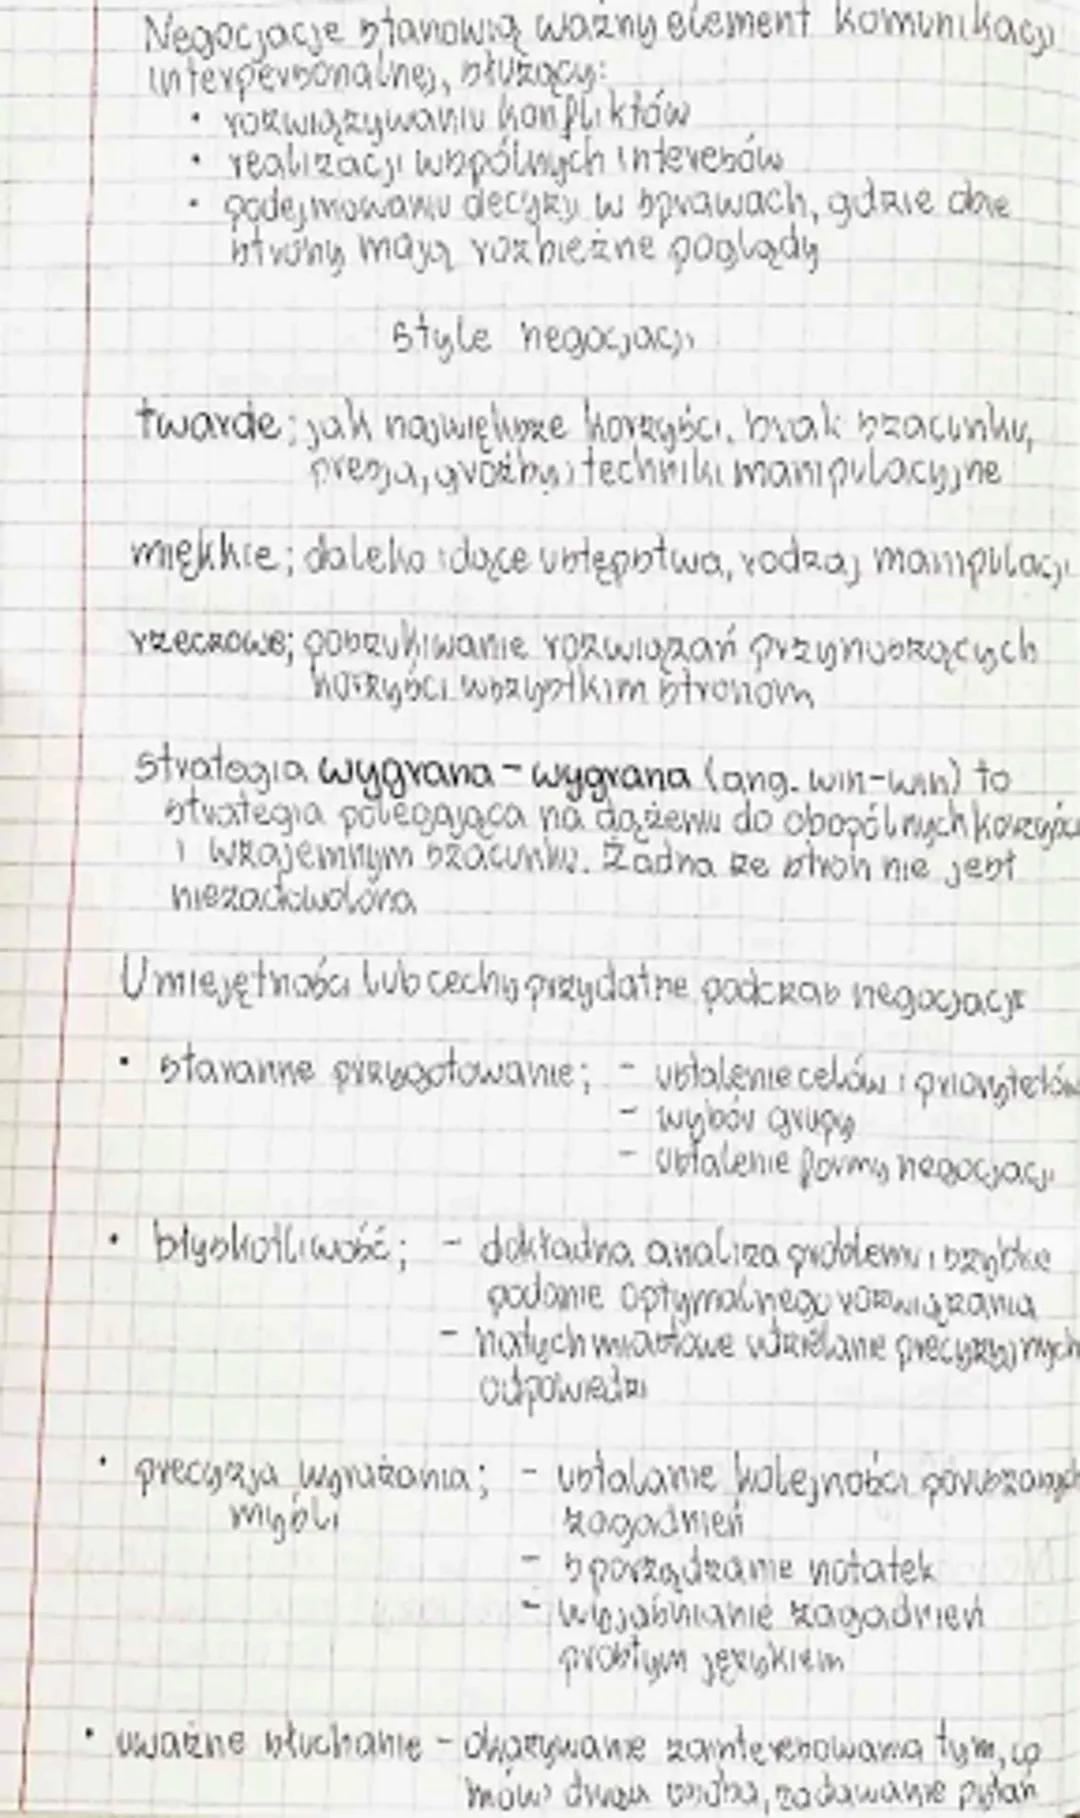 Negocjacje stanowią ważny element komunikacji
interpersonalnej, służący:
• rozwiązywaniu konfliktów
• realizacji wspólnych interesów
• podejmowaniu decyzji w sprawach, gdzie obie
strony mają rozbieżne poglądy
Style negocjacji
twarde; jak największe korzyści, brak szacunku,
presja, groźby, techniki manipulacyjne
miękkie; daleko idące ustępstwa, rodzaj manipulacji
rzeczowe; poszukiwanie rozwiązań przynoszących
korzyści wszystkim stronom
strategia wygrana - wygrana (ang. win-win) to
strategia polegająca na dążeniu do obopólnych korzyści
i wzajemnym szacunku. Żadna ze stron nie jest
niezadowolona
Umiejętności lub cechy przydatne podczas negocjacji
• staranne przygotowanie; - ustalenie celów i priorytetów
- wybór grupy
- ustalenie formy negocjacji
• błyskotliwość; - dokładna analiza problemu i szybkie
podanie optymalnego rozwiązania
- natychmiastowe udzielanie precyzyjnych
odpowiedzi
• precyzja wyrażania; - ustalanie kolejności poruszanych
myśli zagadnień
- sporządzanie notatek
- wyjaśnianie zagadnień
prostym językiem
• uważne słuchanie - okazywanie zainteresowania tym, co
mówi druga osoba, zadawanie pytań